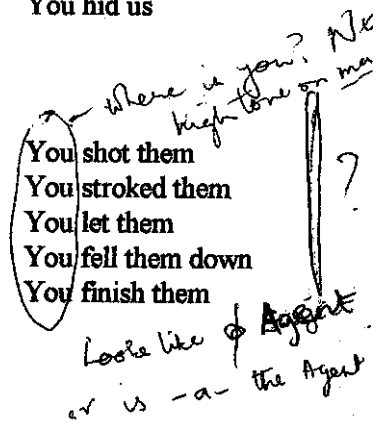 You hid us
where is you? No
high tone on ma
You shot them
You stroked them
You let them
You fell them down
You finish them
?
Looks like ϕ Agent
or is -a- the Agent